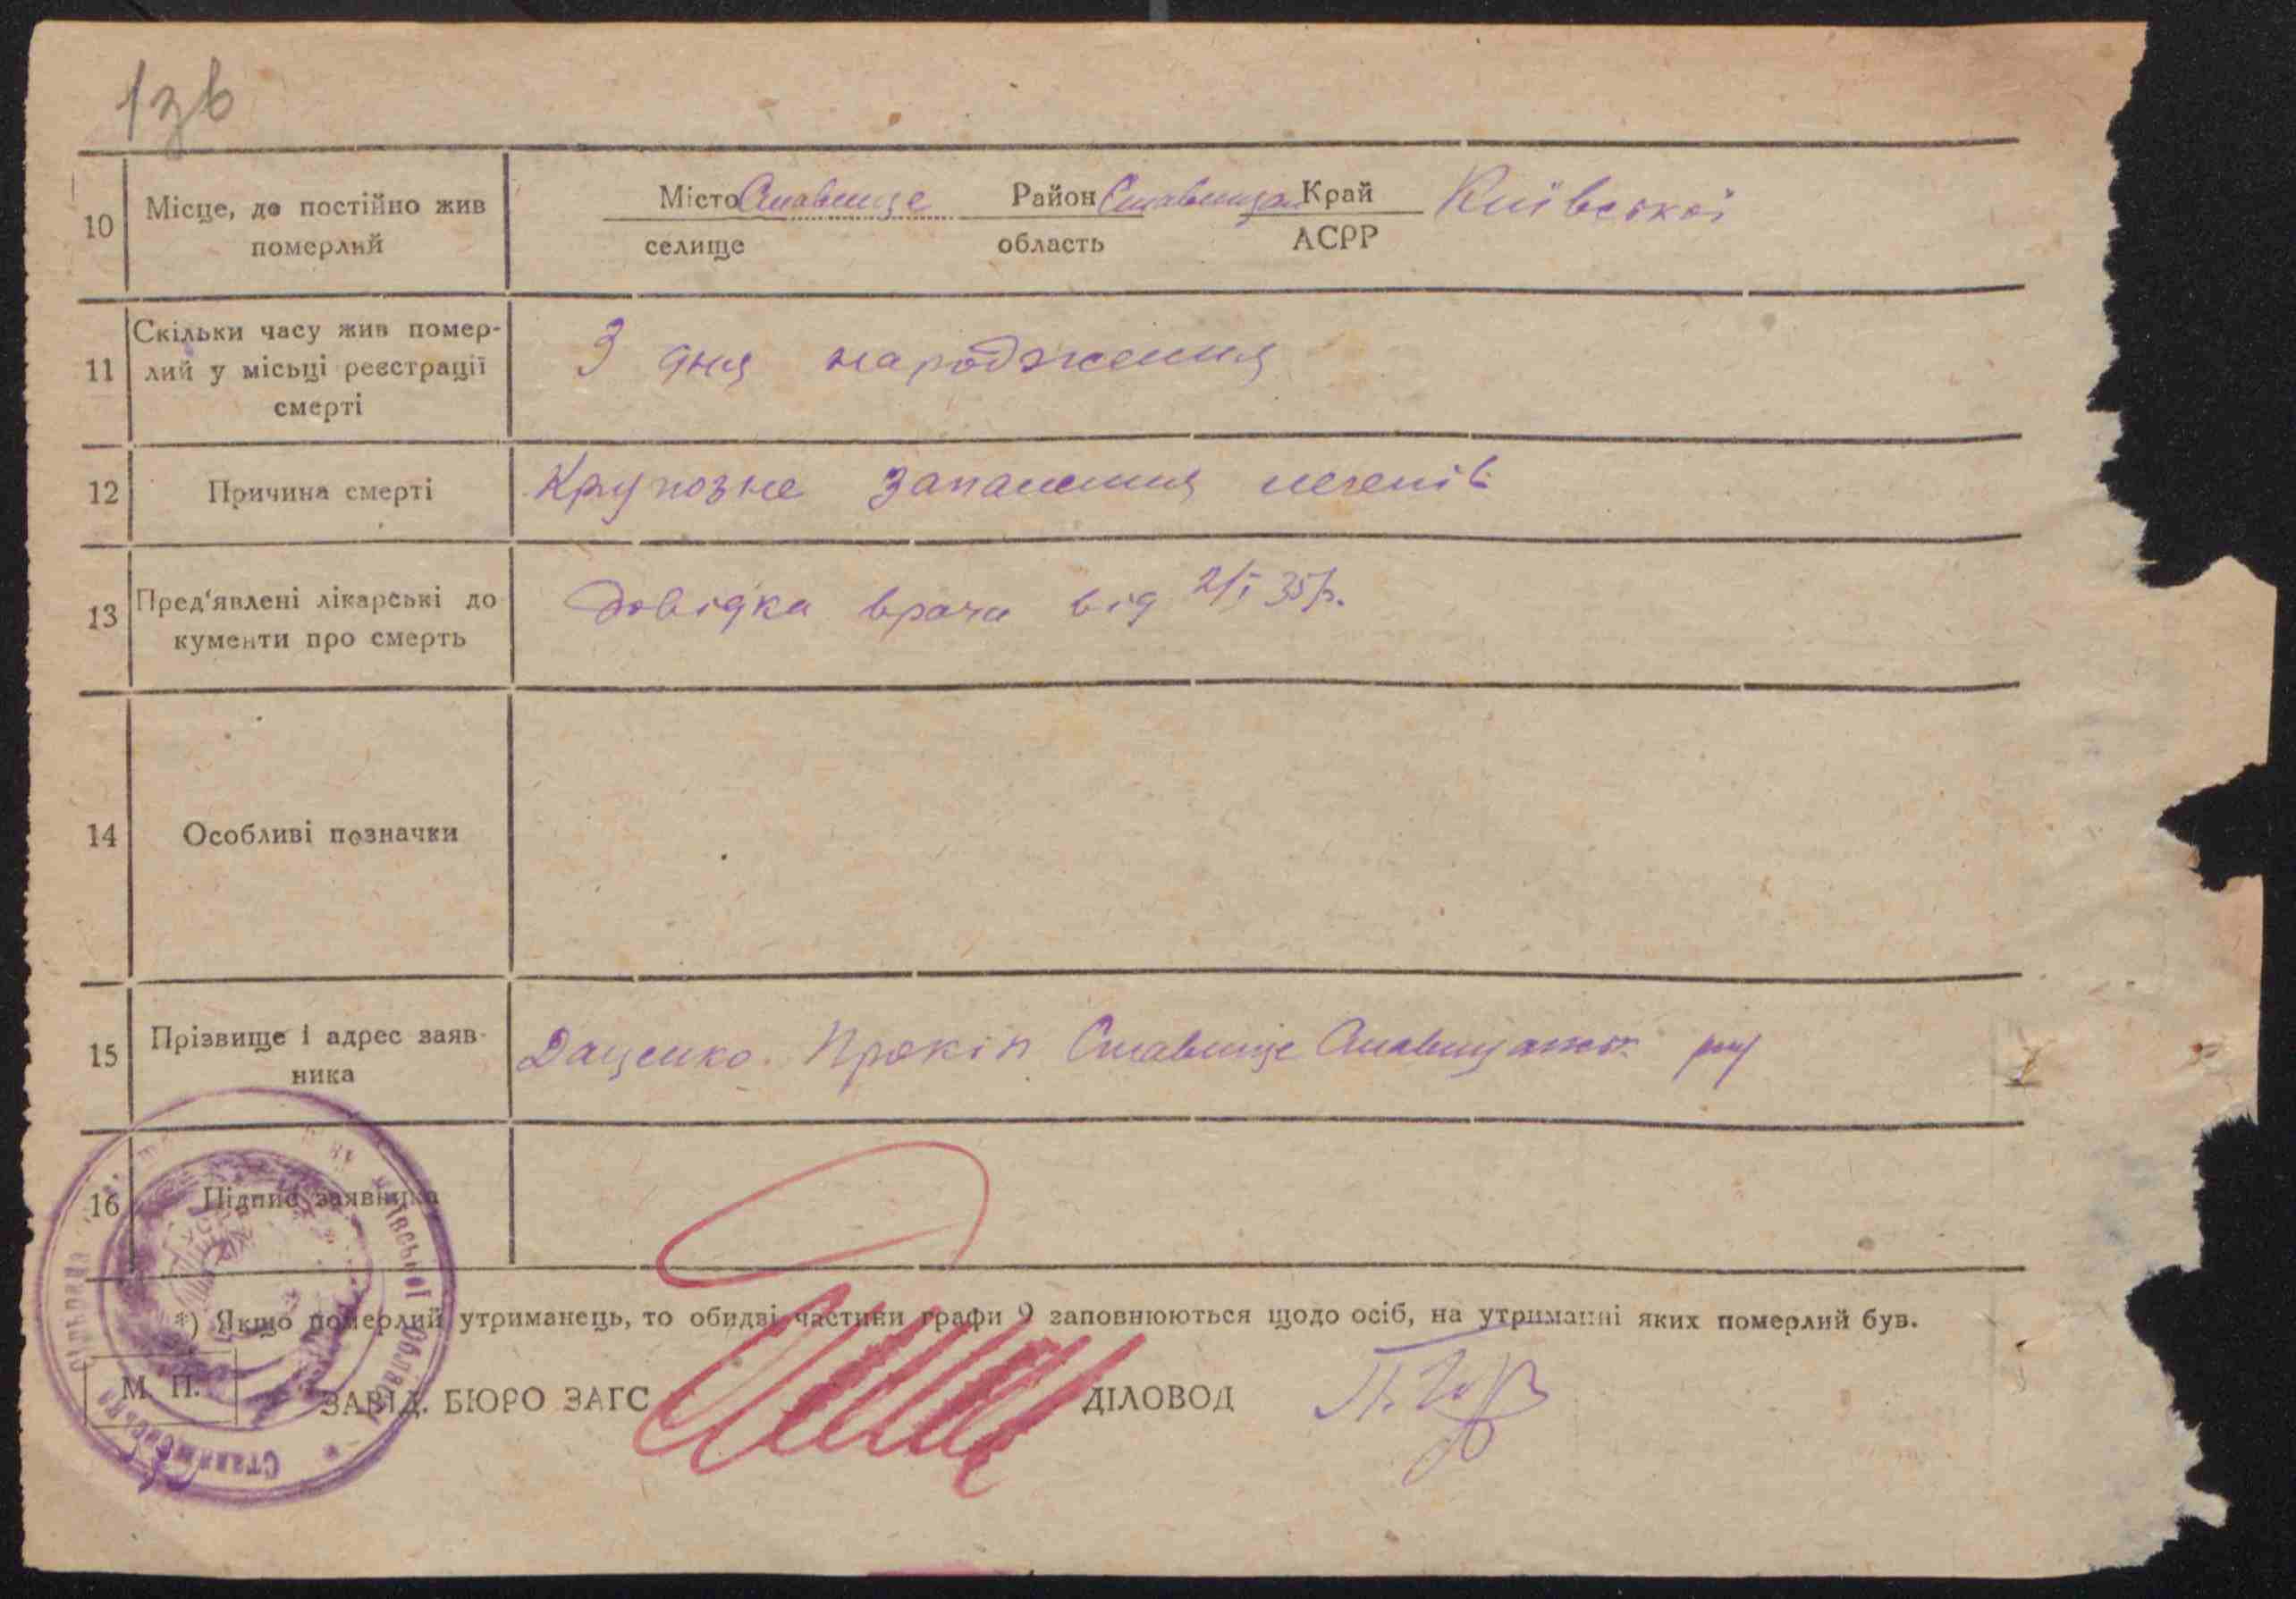 1зв
10 Місце, де постійно жив
померлий
Місто Ставище Район Ставищан Край Київської
селище область АСРР
11 Скільки часу жив помер-
лий у місьці реєстрації
смерті
З дня народження
12 Причина смерті Крупозне запалення легенів
13 Пред'явлені лікарські до
кументи про смерть
Довідка врача від 2/I 35р.
14 Особливі позначки
15 Прізвище і адрес заяв-
ника
Даценко Прокіп Ставище Ставищанськ р-ну
16 Підпис заявника
*) Якщо померлий утриманець, то обидві частини графи 9 заповнюються щодо осіб, на утриманні яких померлий був.
М. П.
ЗАВІД. БЮРО ЗАГС ДІЛОВОД
сільрада Київської Області